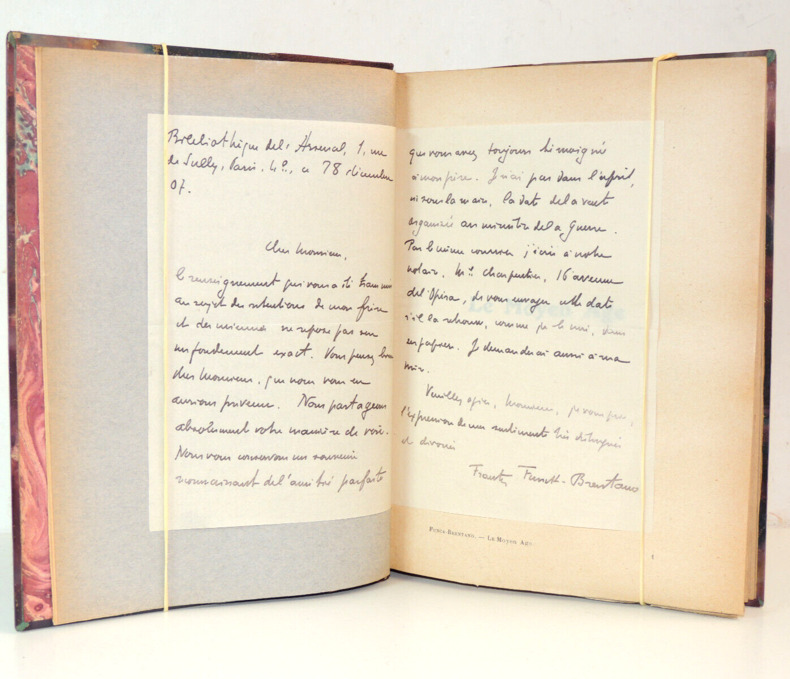 Bibliothèque de l'Arsenal, 1, rue
de Sully, Paris. 4e., ce 18 décembre
07.
Cher Monsieur,
Le renseignement qui vous a été transmis
au sujet des intentions de mon frère
et des miennes ne repose pas sur
un fondement exact. Vous pensez bien
cher Monsieur, que nous vous en
aurions prévenu. Nous partageons
absolument votre manière de voir.
Nous vous conservons un souvenir
reconnaissant de l'amitié parfaite
que vous avez toujours témoignée
à mon frère. Je n'ai pas dans l'esprit,
ni sous la main, la date de la vente
organisée au ministère de la Guerre.
Par le même courrier j'écris à notre
notaire, Me Charpentier, 16 avenue
de l'Opéra, de vous envoyer cette date
s'il la retrouve, comme je le crois, dans
ses papiers. Je demanderai aussi à ma
mère.
Veuillez agréer, Monsieur, je vous prie,
l'expression de mes sentiments très distingués
et dévoués
Frantz Funck-Brentano
Le Moyen Age
Funck-Brentano. — Le Moyen Age.
1